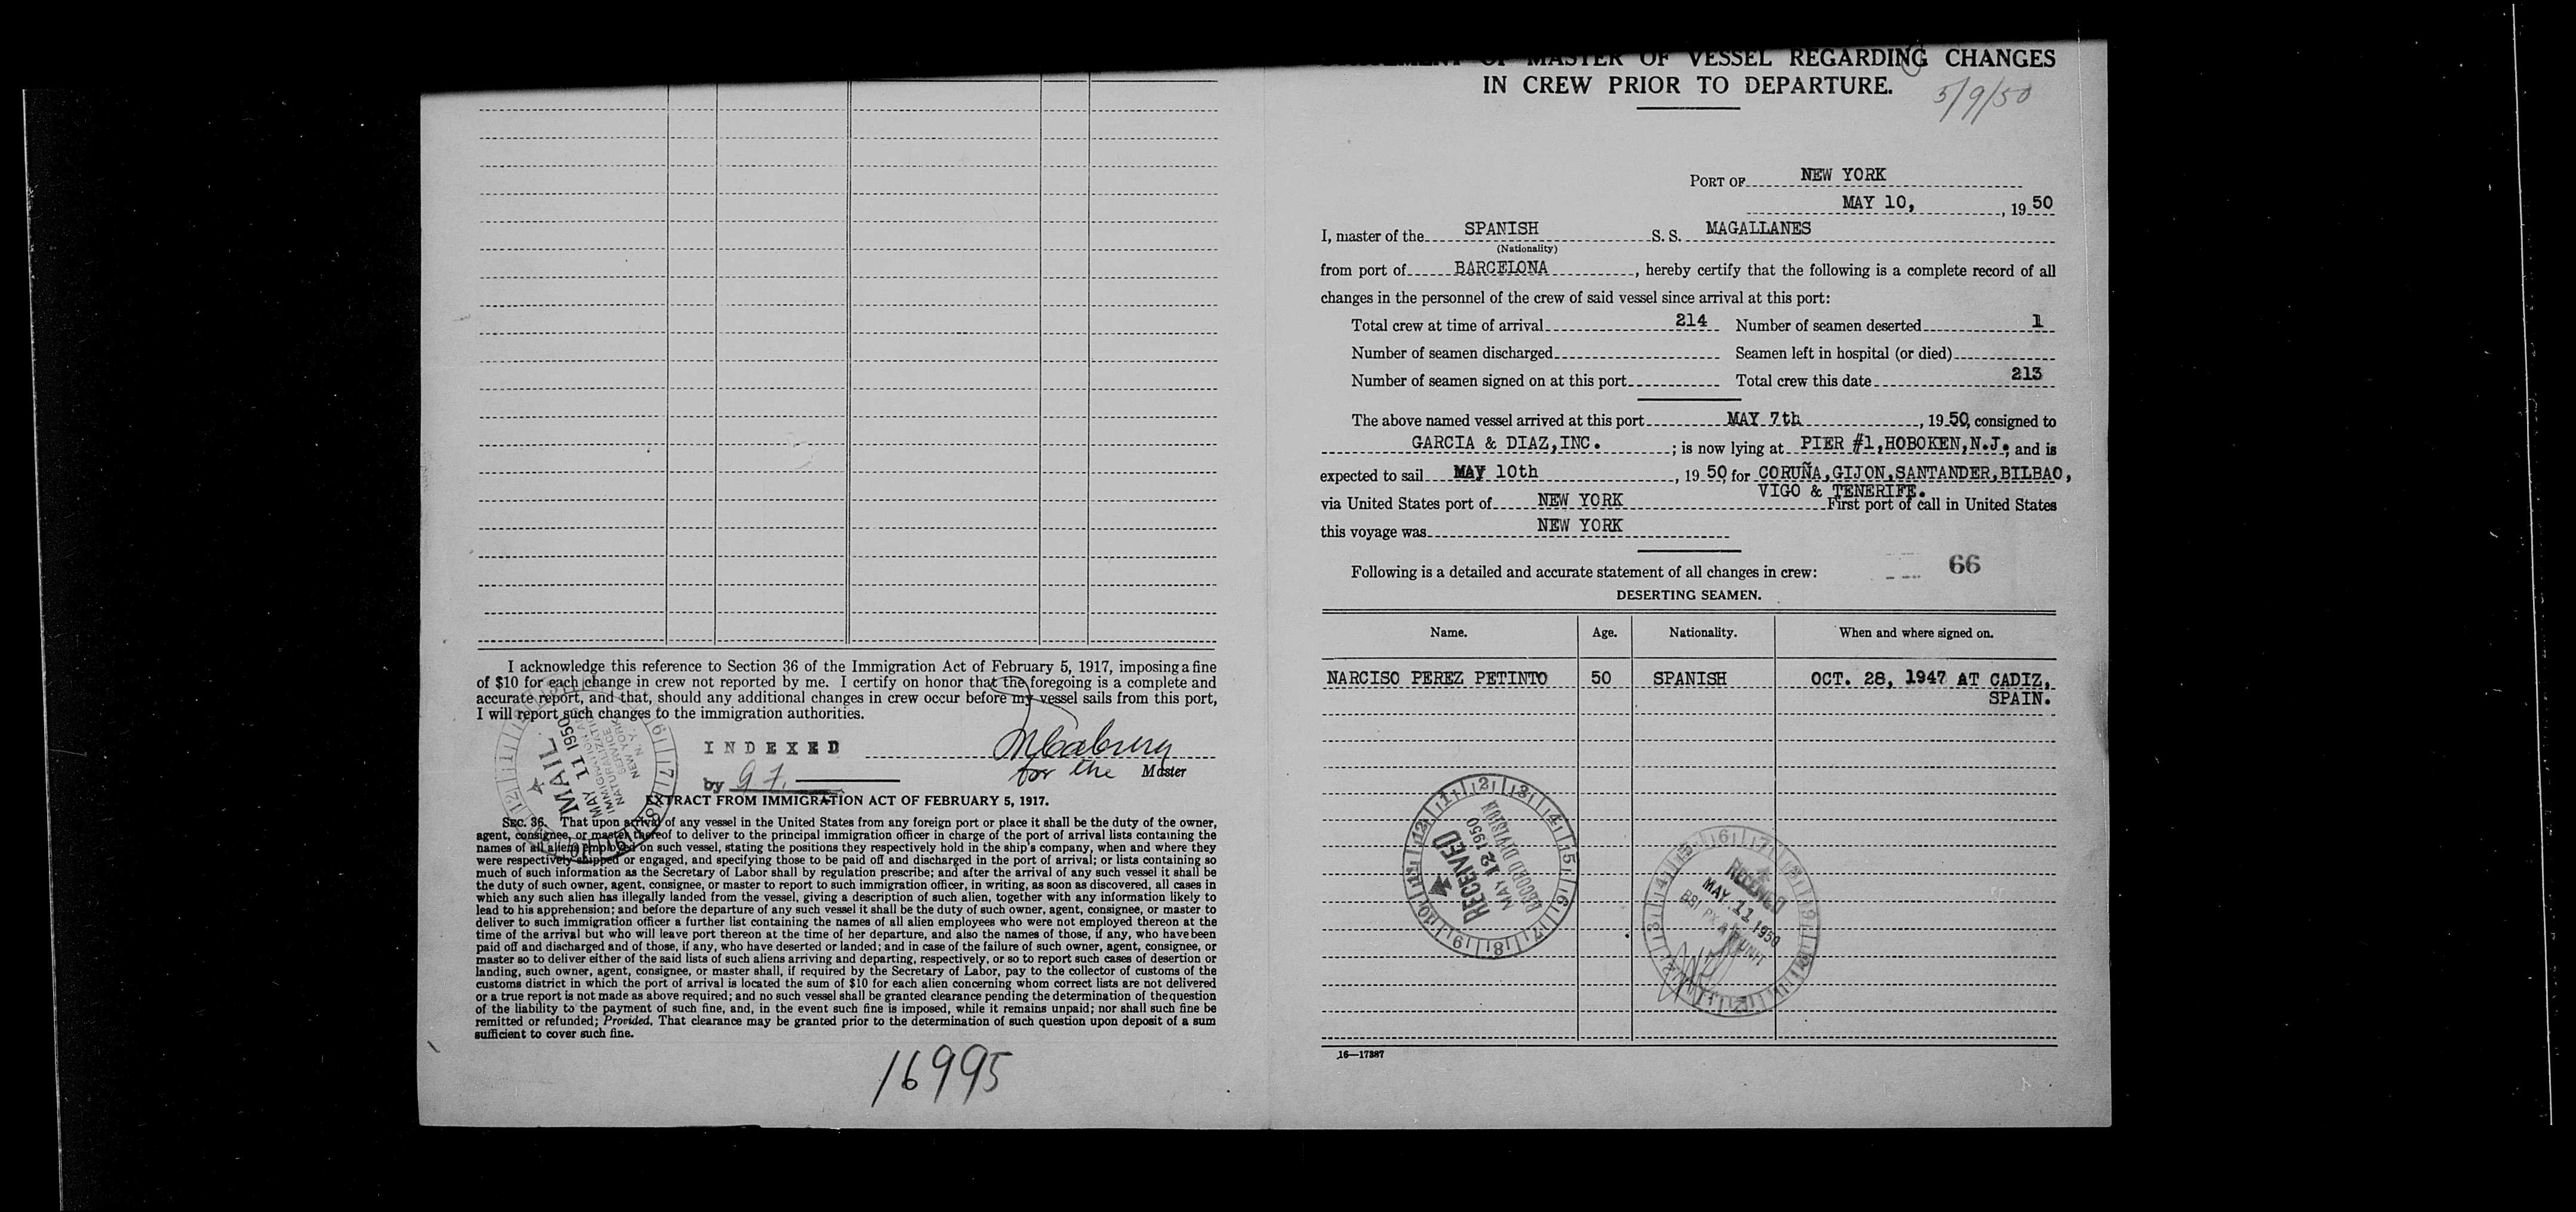 I acknowledge this reference to Section 36 of the Immigration Act of February 5, 1917, imposing a fine
of $10 for each change in crew not reported by me. I certify on honor that the foregoing is a complete and
accurate report, and that, should any additional changes in crew occur before my vessel sails from this port,
I will report such changes to the immigration authorities.
MAIL
MAY 11 1950
IMMIGRATION AND
NATURALIZATION
SERVICE
NEW YORK
N. Y.
INDEXED
by
for the Master
EXTRACT FROM IMMIGRATION ACT OF FEBRUARY 5, 1917.
SEC. 36. That upon arrival of any vessel in the United States from any foreign port or place it shall be the duty of the owner,
agent, consignee, or master thereof to deliver to the principal immigration officer in charge of the port of arrival lists containing the
names of all aliens employed on such vessel, stating the positions they respectively hold in the ship's company, when and where they
were respectively shipped or engaged, and specifying those to be paid off and discharged in the port of arrival; or lists containing so
much of such information as the Secretary of Labor shall by regulation prescribe; and after the arrival of any such vessel it shall be
the duty of such owner, agent, consignee, or master to report to such immigration officer, in writing, as soon as discovered, all cases in
which any such alien has illegally landed from the vessel, giving a description of such alien, together with any information likely to
lead to his apprehension; and before the departure of any such vessel it shall be the duty of such owner, agent, consignee, or master to
deliver to such immigration officer a further list containing the names of all alien employees who were not employed thereon at the
time of the arrival but who will leave port thereon at the time of her departure, and also the names of those, if any, who have been
paid off and discharged and of those, if any, who have deserted or landed; and in case of the failure of such owner, agent, consignee, or
master so to deliver either of the said lists of such aliens arriving and departing, respectively, or so to report such cases of desertion or
landing, such owner, agent, consignee, or master shall, if required by the Secretary of Labor, pay to the collector of customs of the
customs district in which the port of arrival is located the sum of $10 for each alien concerning whom correct lists are not delivered
or a true report is not made as above required; and no such vessel shall be granted clearance pending the determination of the question
of the liability to the payment of such fine, and, in the event such fine is imposed, while it remains unpaid; nor shall such fine be
remitted or refunded; Provided, That clearance may be granted prior to the determination of such question upon deposit of a sum
sufficient to cover such fine.
16995
OF MASTER OF VESSEL REGARDING CHANGES
IN CREW PRIOR TO DEPARTURE.
5/9/50
PORT OF NEW YORK
MAY 10, , 19 50
I, master of the SPANISH S. S. MAGALLANES
(Nationality)
from port of BARCELONA , hereby certify that the following is a complete record of all
changes in the personnel of the crew of said vessel since arrival at this port:
Total crew at time of arrival 214 Number of seamen deserted 1
Number of seamen discharged Seamen left in hospital (or died)
Number of seamen signed on at this port Total crew this date 213
The above named vessel arrived at this port MAY 7th , 19 50, consigned to
GARCIA & DIAZ,INC. ; is now lying at PIER #1,HOBOKEN,N.J. and is
expected to sail MAY 10th , 19 50 for CORUÑA,GIJON,SANTANDER,BILBAO,
VIGO & TENERIFE.
via United States port of NEW YORK First port of call in United States
this voyage was NEW YORK
66
Following is a detailed and accurate statement of all changes in crew:
DESERTING SEAMEN.
Name. Age. Nationality. When and where signed on.
NARCISO PEREZ PETINTO 50 SPANISH OCT. 28, 1947 AT CADIZ,
SPAIN.
RECEIVED
MAY 12 1950
RECORD DIVISION
RECEIVED
MAY 11 1950
16—17387